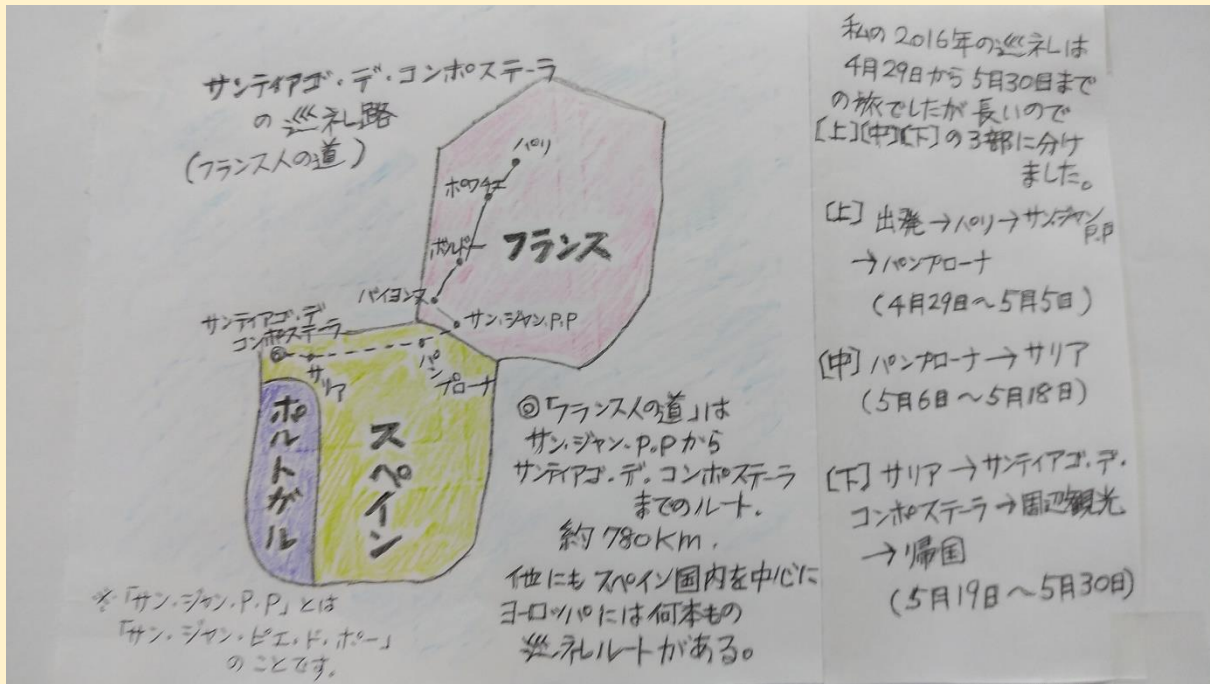 サンティアゴ・デ・コンポステーラ
の巡礼路
(フランス人の道)
パリ
ポワチエ
ボルドー
フランス
バイヨンヌ
サン・ジャン・P.P
サンティアゴ・デ・
コンポステーラ
サリア
パン
プローナ
ポルトガル
スペイン
◎「フランス人の道」は
サン・ジャン・P.Pから
サンティアゴ・デ・コンポステーラ
までのルート.
約780km.
他にもスペイン国内を中心に
ヨーロッパには何本もの
巡礼ルートがある。
※「サン・ジャン・P.P」とは
「サン・ジャン・ピエ・ド・ポー」
のことです。
私の2016年の巡礼は
4月29日から5月30日まで
の旅でしたが長いので
[上][中][下]の3部に分け
ました。
[上] 出発→パリ→サン・ジャン
P.P
→パンプローナ
(4月29日〜5月5日)
[中] パンプローナ→サリア
(5月6日〜5月18日)
[下] サリア→サンティアゴ・デ・
コンポステーラ→周辺観光
→帰国
(5月19日〜5月30日)